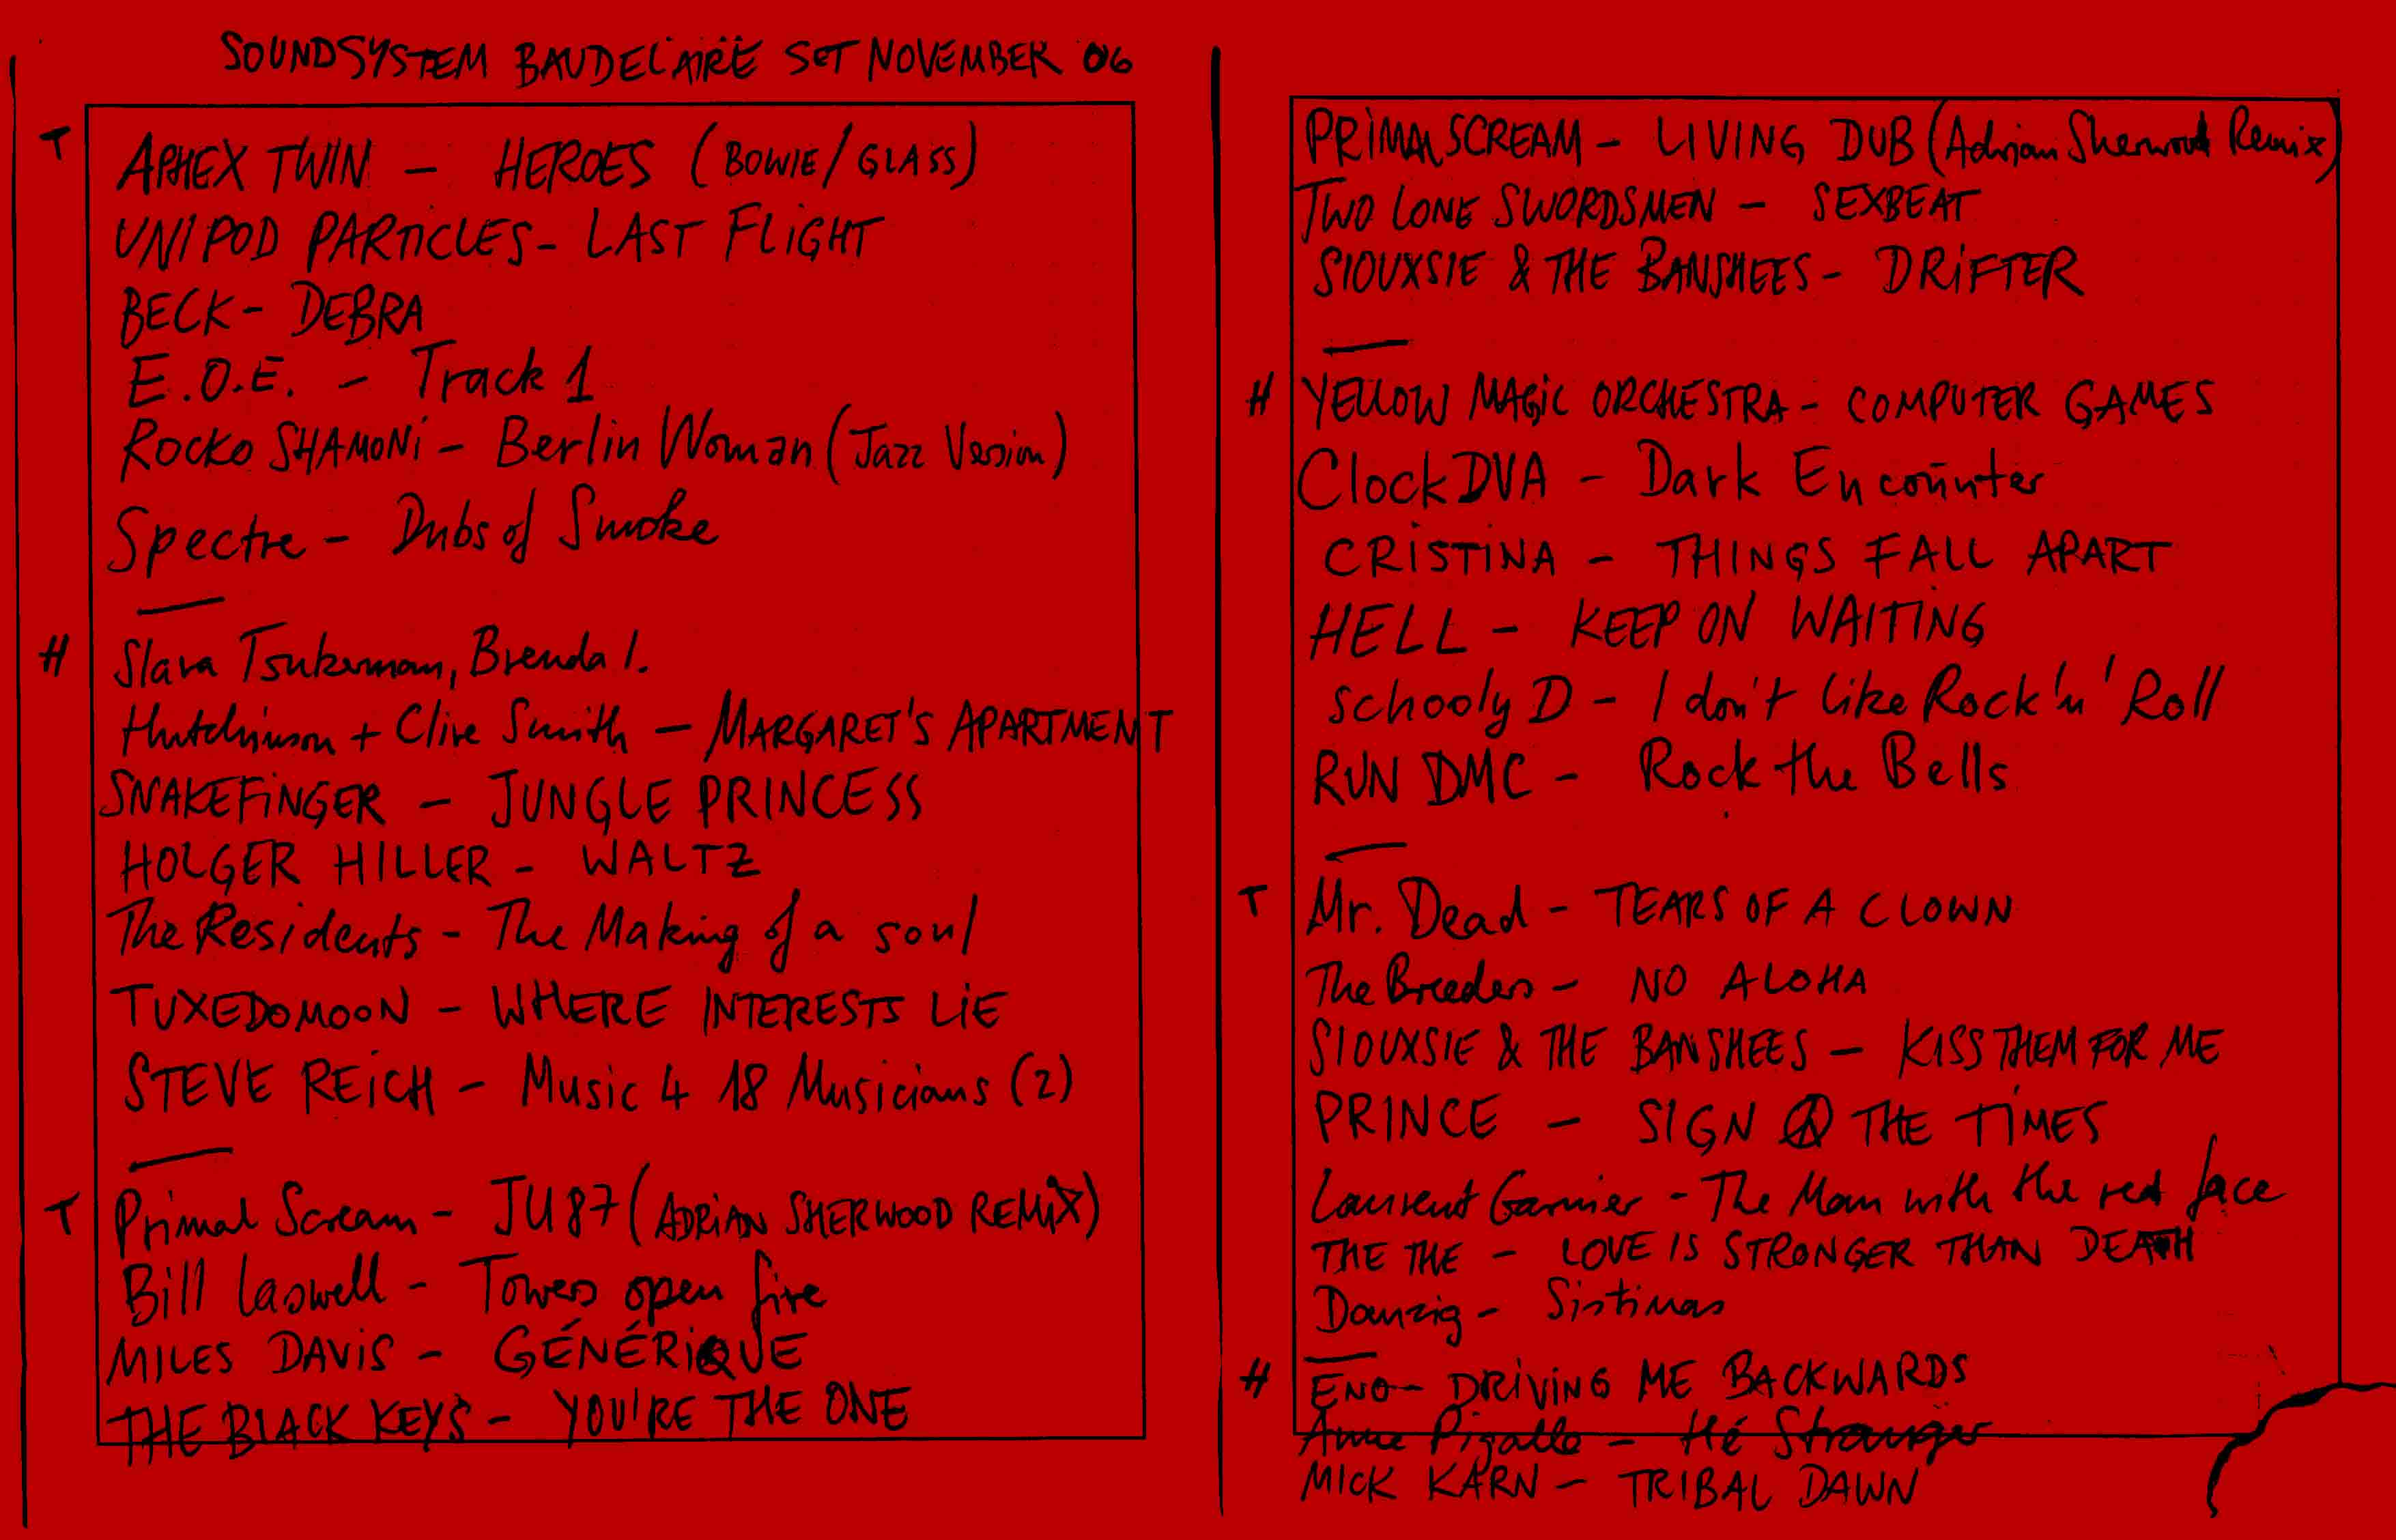 SOUNDSYSTEM BAUDELAIRE SET NOVEMBER 06
T
APHEX TWIN – HEROES (BOWIE/GLASS)
UNIPOD PARTICLES – LAST FLIGHT
BECK – DEBRA
E.O.E. – Track 1
ROCKO SHAMONI – Berlin Woman (Jazz Version)
Spectre – Dubs of Smoke
H
Slava Tsukerman, Brenda I.
Hutchinson + Clive Smith – MARGARET'S APARTMENT
SNAKEFINGER – JUNGLE PRINCESS
HOLGER HILLER – WALTZ
The Residents – The Making of a soul
TUXEDOMOON – WHERE INTERESTS LIE
STEVE REICH – Music 4 18 Musicians (2)
T
Primal Scream – JU87 (ADRIAN SHERWOOD REMIX)
Bill Laswell – Towers open fire
MILES DAVIS – GÉNÉRIQUE
THE BLACK KEYS – YOU'RE THE ONE
PRIMAL SCREAM – LIVING DUB (Adrian Sherwood Remix)
TWO LONE SWORDSMEN – SEXBEAT
SIOUXSIE & THE BANSHEES – DRIFTER
H
YELLOW MAGIC ORCHESTRA – COMPUTER GAMES
Clock DVA – Dark Encounter
CRISTINA – THINGS FALL APART
HELL – KEEP ON WAITING
Schooly D – I don't like Rock 'n' Roll
RUN DMC – Rock the Bells
T
Mr. Dead – TEARS OF A CLOWN
The Breeders – NO ALOHA
SIOUXSIE & THE BANSHEES – KISS THEM FOR ME
PRINCE – SIGN Ⓐ THE TIMES
Laurent Garnier – The Man with the red face
THE THE – LOVE IS STRONGER THAN DEATH
Danzig – Sistinas
H
ENO – DRIVING ME BACKWARDS
Anne Pigalle – Hé Stranger
MICK KARN – TRIBAL DAWN